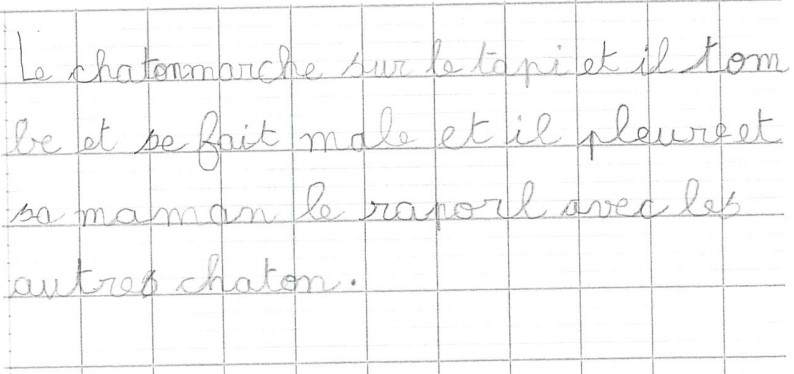 Le chatonmarche sur le tapi et il tom
be et se fait male et il pleure et
sa maman le raporl avec les
autres chaton.